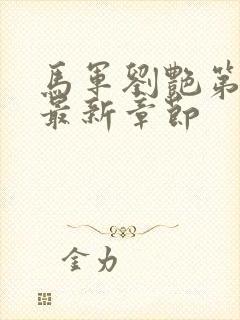 馬軍劉艷第
最新章節
金力